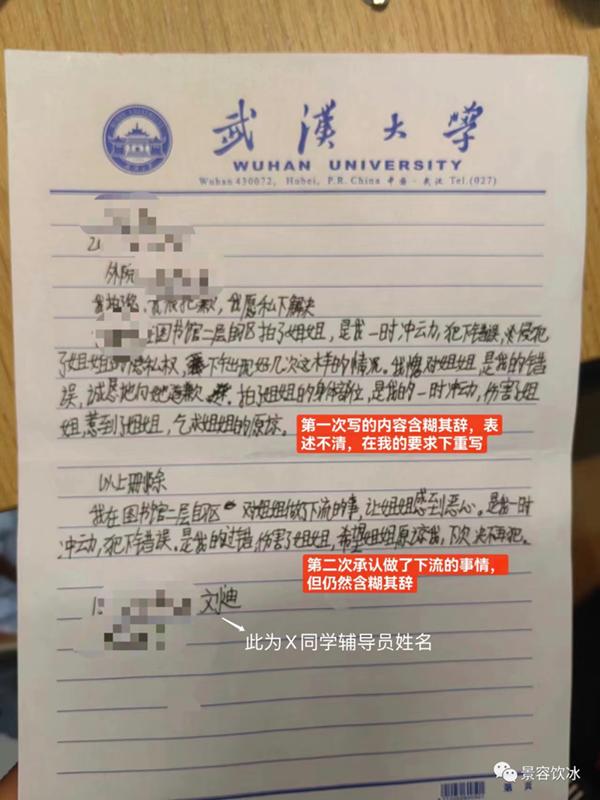 武漢大學
WUHAN UNIVERSITY
Wuhan 430072, Hubei, P.R. China 中国·武汉 Tel.(027)
外院
我拍了您,我很抱歉,我愿私下解决
在图书馆二层自区拍了姐姐,是我一时冲动,犯下错误,侵犯
了姐姐的隐私权,下午出现好几次这样的情况。我愧对姐姐,是我的错
误,诚恳地向她道歉。拍了姐姐的身体部位,是我的一时冲动,伤害了姐
姐,惹到了姐姐,乞求姐姐的原谅。
第一次写的内容含糊其辞,表
述不清,在我的要求下重写
以上删除
我在图书馆二层自区对姐姐做了下流的事,让姐姐感到恶心。是我一时
冲动,犯下错误。是我的过错伤害了姐姐,希望姐姐原谅我,下次决不再犯。
第二次承认做了下流的事情,
但仍然含糊其辞
刘迪
此为X同学辅导员姓名
第 页
景容饮冰